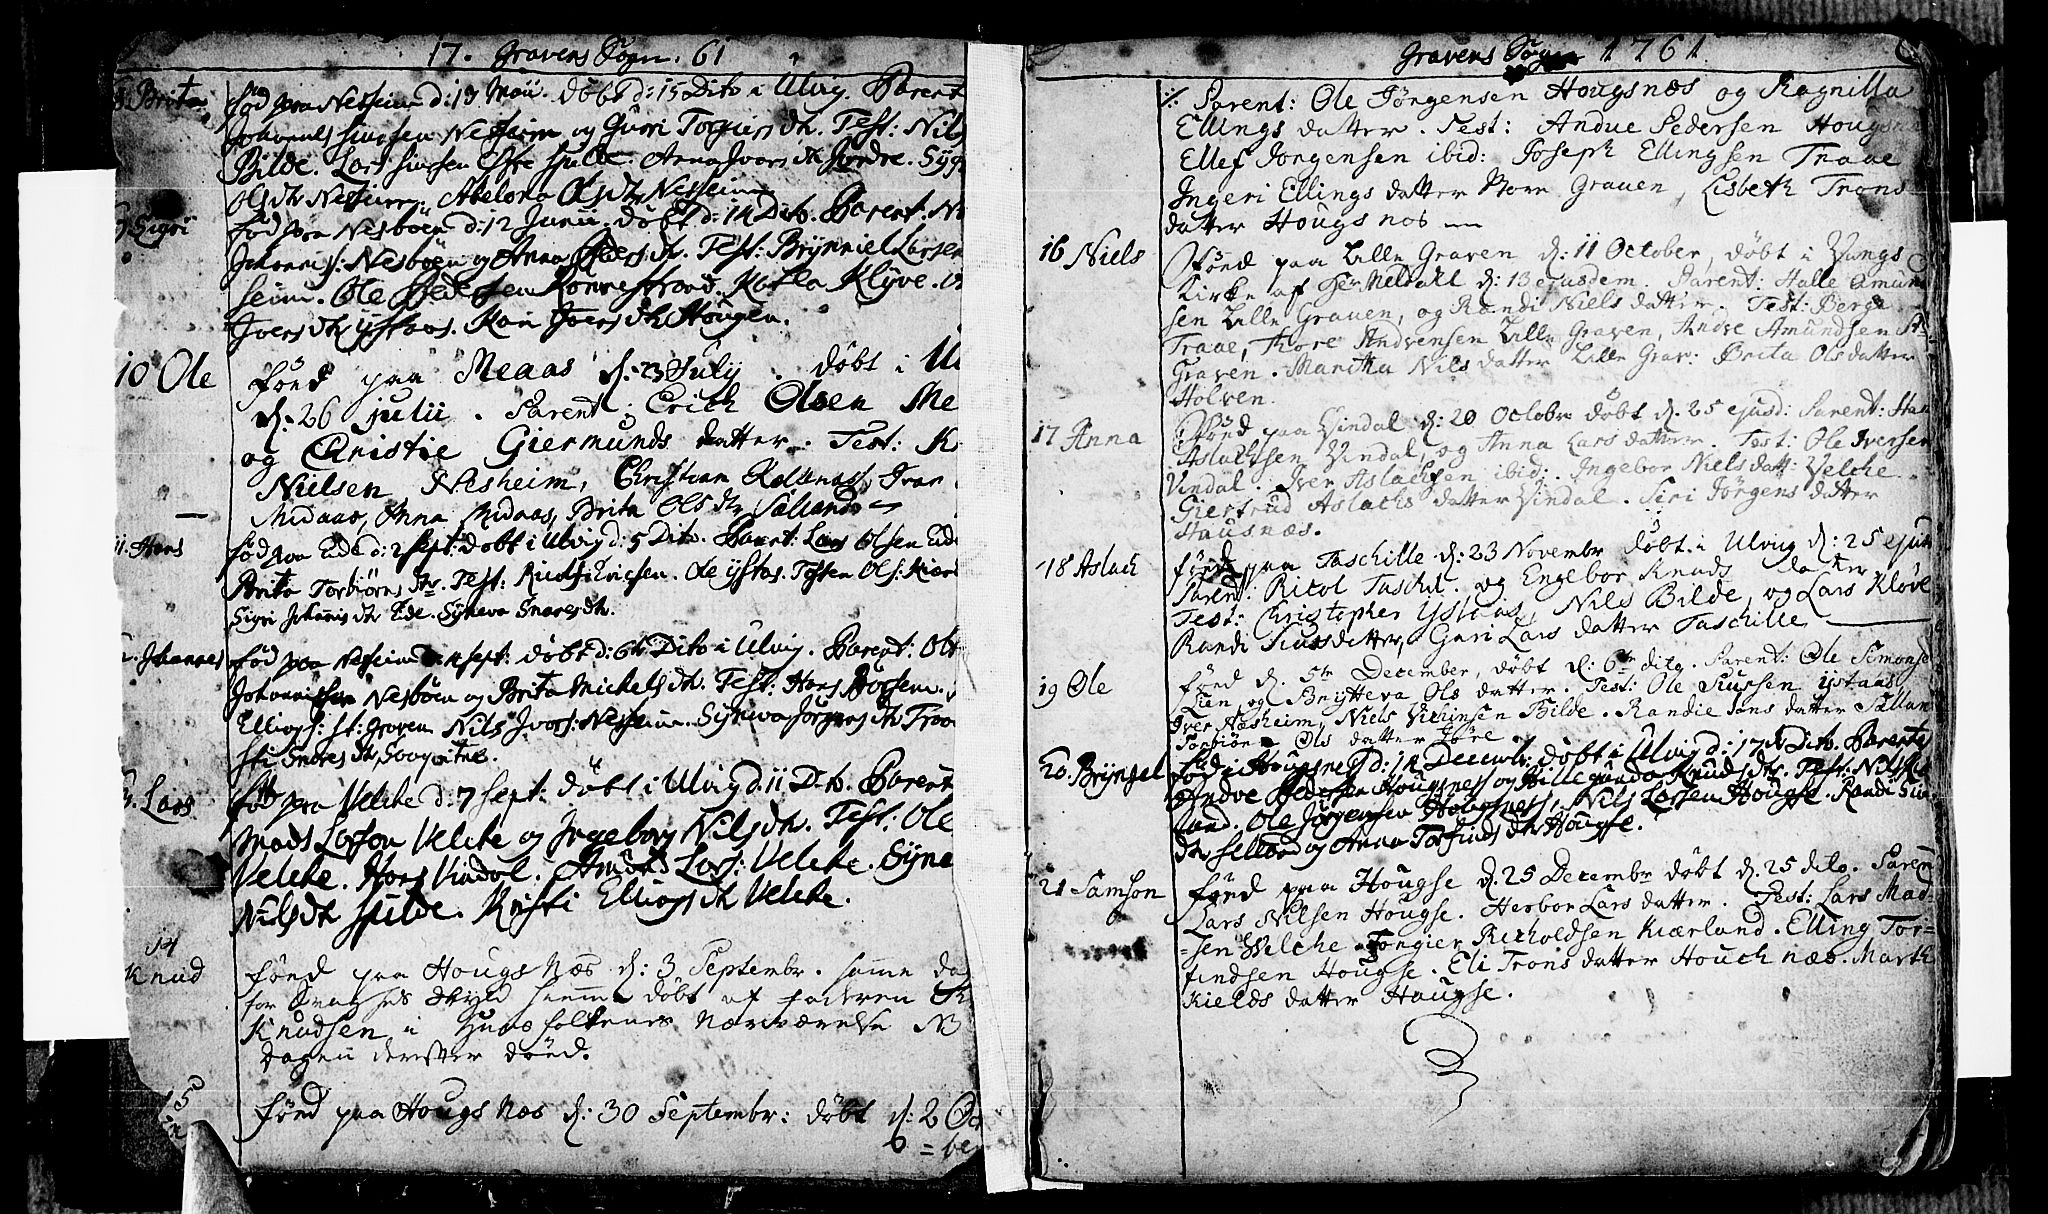 17. Gravens Sogn. 61
8. Brita
fød paa Nesseim d: 13 Maii. døbt d: 15 Dito i Ulvig. Parent
Johannes Nesseim og Guri Torgiers dtr. Test: Nils
Bilde. Lars Siursen Hylde. Anna Ivers dtr Jordre. Syg
Ols dtr Nesseim. Abelona Ols dtr Nesseim
9. Sigri
fød paa Nesbøen d: 12 Junii. døbt d: 14 Dito. Parent. Ni
Johannis: Nesbøen og Anna Peders dtr. Test: Brynniel Larsen
seim. Ole Pedersen Rønnestrand. Katla Klyve.
Ivers dtr Ystaas. Kari Ivers dtr Hougen.
10 Ole
fønd paa Meaas d: 23 July. døbt i Ul
d: 26 julii. Parent: Erich Olsen Me
og Christie Giermunds datter. Test: K
Nielsen Nesheim, Christian Kollenas, Ivar
Midaas, Anna Midaas, Brita Ols dtr Sælland
11. Hans
fød paa Eide d: 2 Sept: døbt i Ulvig d: 5 Dito. Parent: Lars Olsen Eide
Brita Torbiørns dtr. Test: Ole Ystas. Tosten Ols: Kiær
Sigri Johannis dtr Eide. Syneva Snares dtr.
Johannes
fød paa Nesseim d: 4 Sept: døbt d: 6te Dito i Ulvig. Parent: Ole
Johannissen Nesbøen og Brita Mickels dtr. Test: Hans
Ellings: st: Graven Nils Ivars: Nesseim. Syneva Jørgens dtr Traa
sti Snares dtr
Lars
fød paa Velche d: 7 Sept: døbt i Ulvig d: 11 Dito. Parent
Mads Larsen Velche og Ingeborg Nils dtr. Test: Ole
Velche. Hans Vindal. Amund Lars: Velche. Syne
Nils dtr Hylde. Kristi Ellings dtr Velche.
14
Knud
fønd paa Hougs Næs d: 3 Septembr. samme da
for Svagheds Skyld hiemme døbt af faderen
Knudsen i Huusfolkenes Nærværelse
Dagen derefter dønd.
15
fønd paa Hougs Næs d: 30 Septembr: døbt d: 2 Oct
= ber
Gravens Sogn 1761
Parent: Ole Jørgensen Hougsnæs og Ragnilla
Ellings datter. Test: Andve Pedersen Hougsne
Ellef Jorgensen ibid: Joseph Ellingsen Traae
Ingeri Ellings datter Store Graven, Lisbeth Trons
datter Hougsnos
16 Niels
Fønd paa Lille Graven d: 11 October, døbt i Vangs
Kirke af Her Neldahl d: 13 ejusdem. Parent: Halle Amund
sen Lille Graven, og Randi Niels datter. Test: Berge
Traae, Thore Andvensen Lille Graven, Andve Amundsen St=
Graven. Maritha Nils datter Lille Grav: Brita Olsdatter
Holven.
17 Anna
Fønd paa Vindal d: 20 Octobr døbt d. 25 ejusd: Parent: Han
Aslachsen Vindal, og Anna Lars datter. Test: Ole Iversen
Vindal. Iver Aslachsen ibid: Ingebor Niels datt: Velche
Giertrud Aslachs datter Vindal. Siri Jørgens datter
Hausnæs.
18 Aslach
fønd paa Taschille d: 23 Novembr døbt i Ulvig d: 25 ejusd
Parent: Ricol Taschil. og Engebor Knuds datter
Test: Christopher Ystaas, Nils Bilde, og Lars Kløve
Randi Siursdatter, Guri Lars datter Taschille
19 Ole
fønd d. 5te December, døbt d: 6te dito. Parent: Ole Simonse
Lien, og Brytteva Ols datter. Test: Ole Siursen Ystaas
Iver Aasheim, Niels Bilde. Randie Jons datter Sællan
Torbiør Ols datter Jore.
20. Bryngel
fød i Hougsnes d: 14 Decembr: døbt i Ulvig d: 17de Dito. Parente
Andve Pedersen Hougsnes og Hillegunda Knuds dtr. Test: Nils
land. Ole Jørgensen Hougsness. Nils Larsen Hougse. Randi Siu
dtr Selland og Anna Torfinds dtr Hougse.
21 Samson
fønd paa Hougse d. 25 Decembr døbt d. 25 dito. Paren
Lars Nilsen Hougse. Herbor Lars datter. Test: Lars Mad=
=sen Velche. Torgier Richoldsen Kiærland. Elling Tor=
findsen Hougse. Eli Trons datter Houchnæs. Marth
Kields datter Hougse.